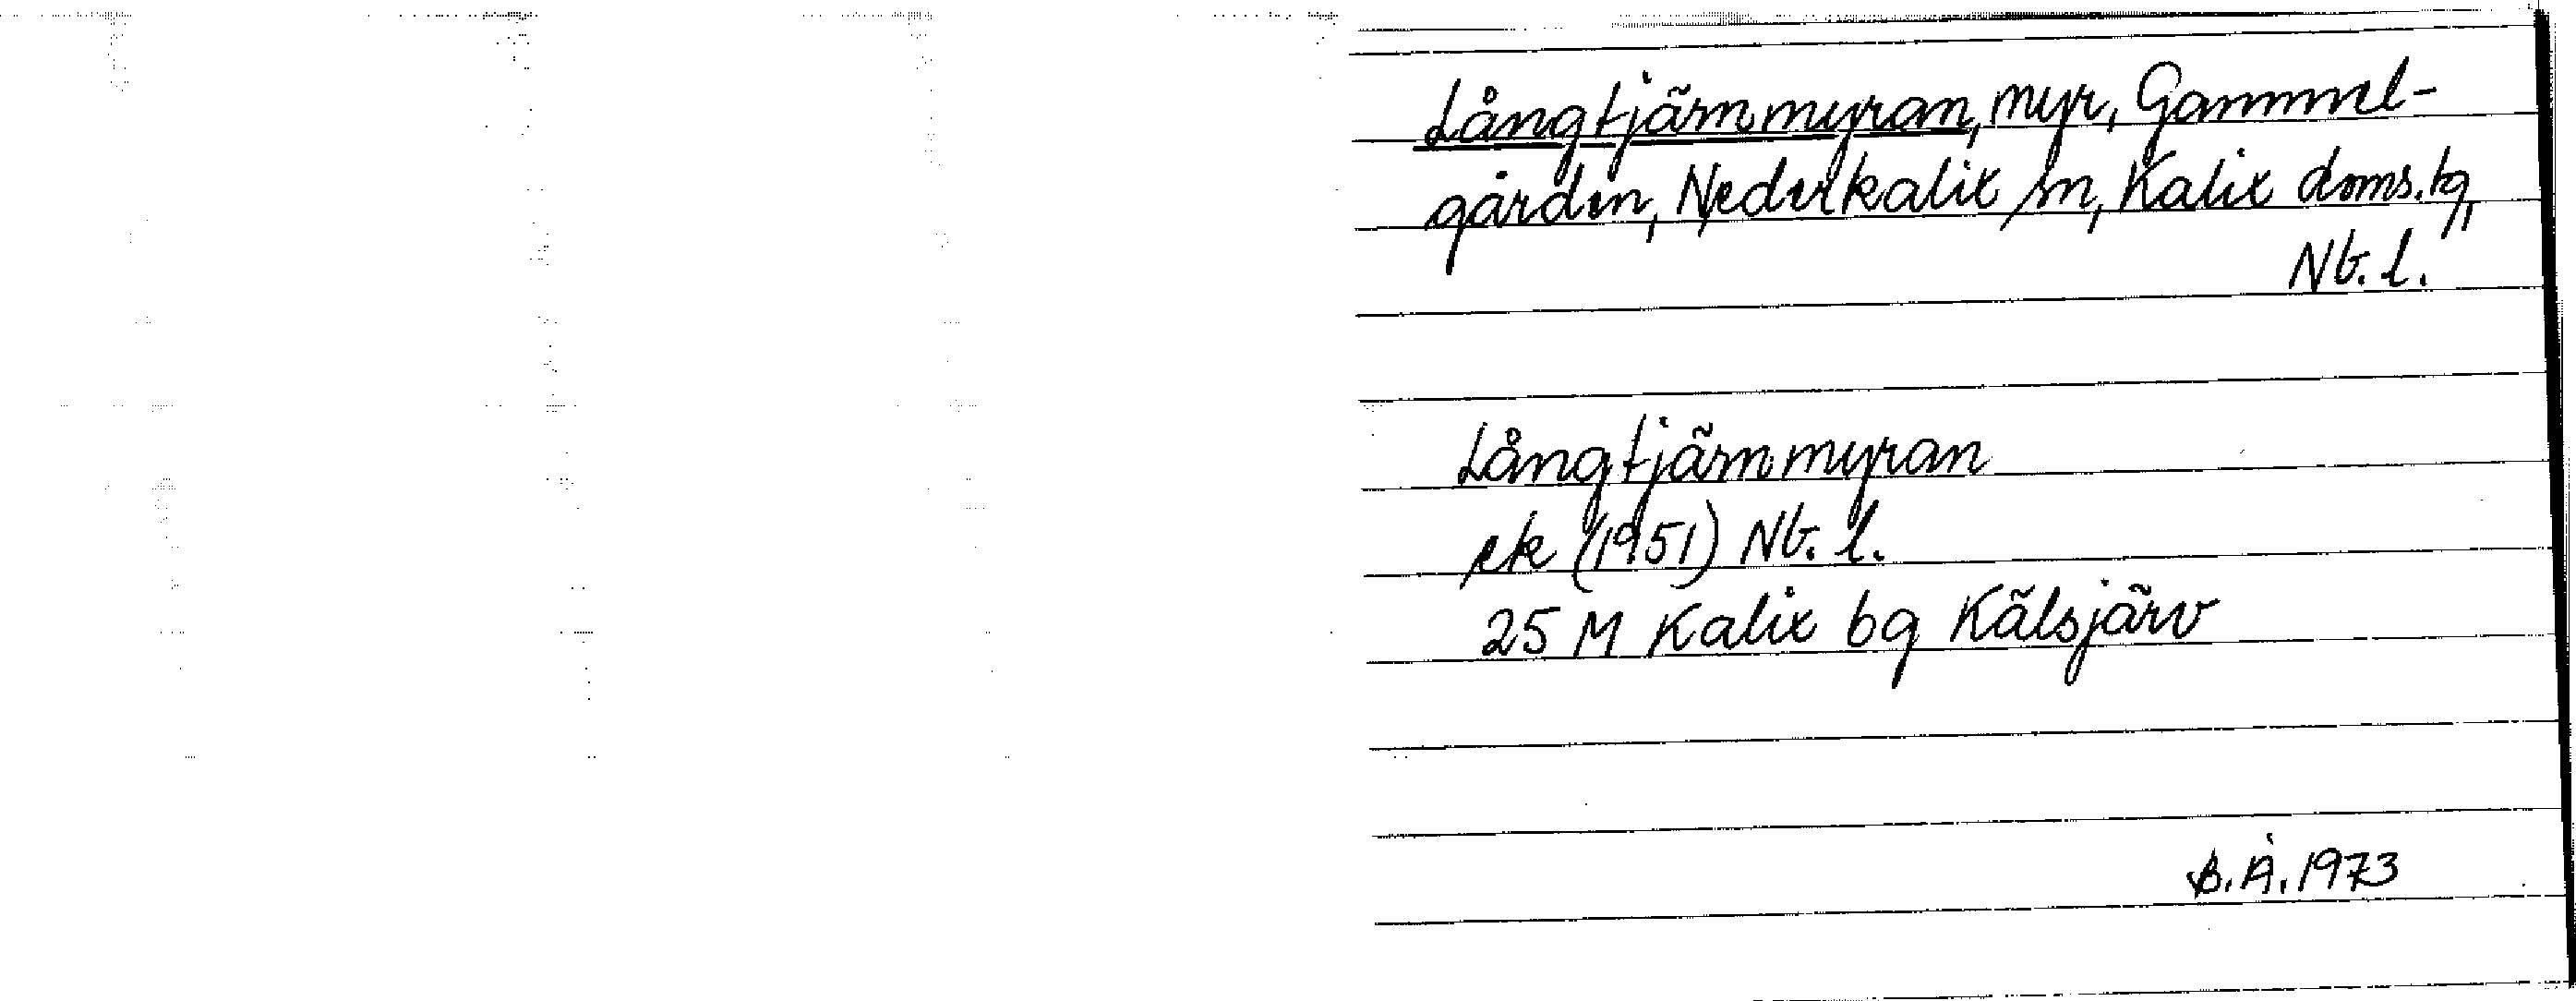 Långtjärnmyran, myr, Gammel-
gården, Nederkalix sn, Kalix doms.bg,
Nb. l.
Långtjärnmyran
ek (1951) Nb. l.
25 M Kalix bg Kälsjärv
B.Å. 1973